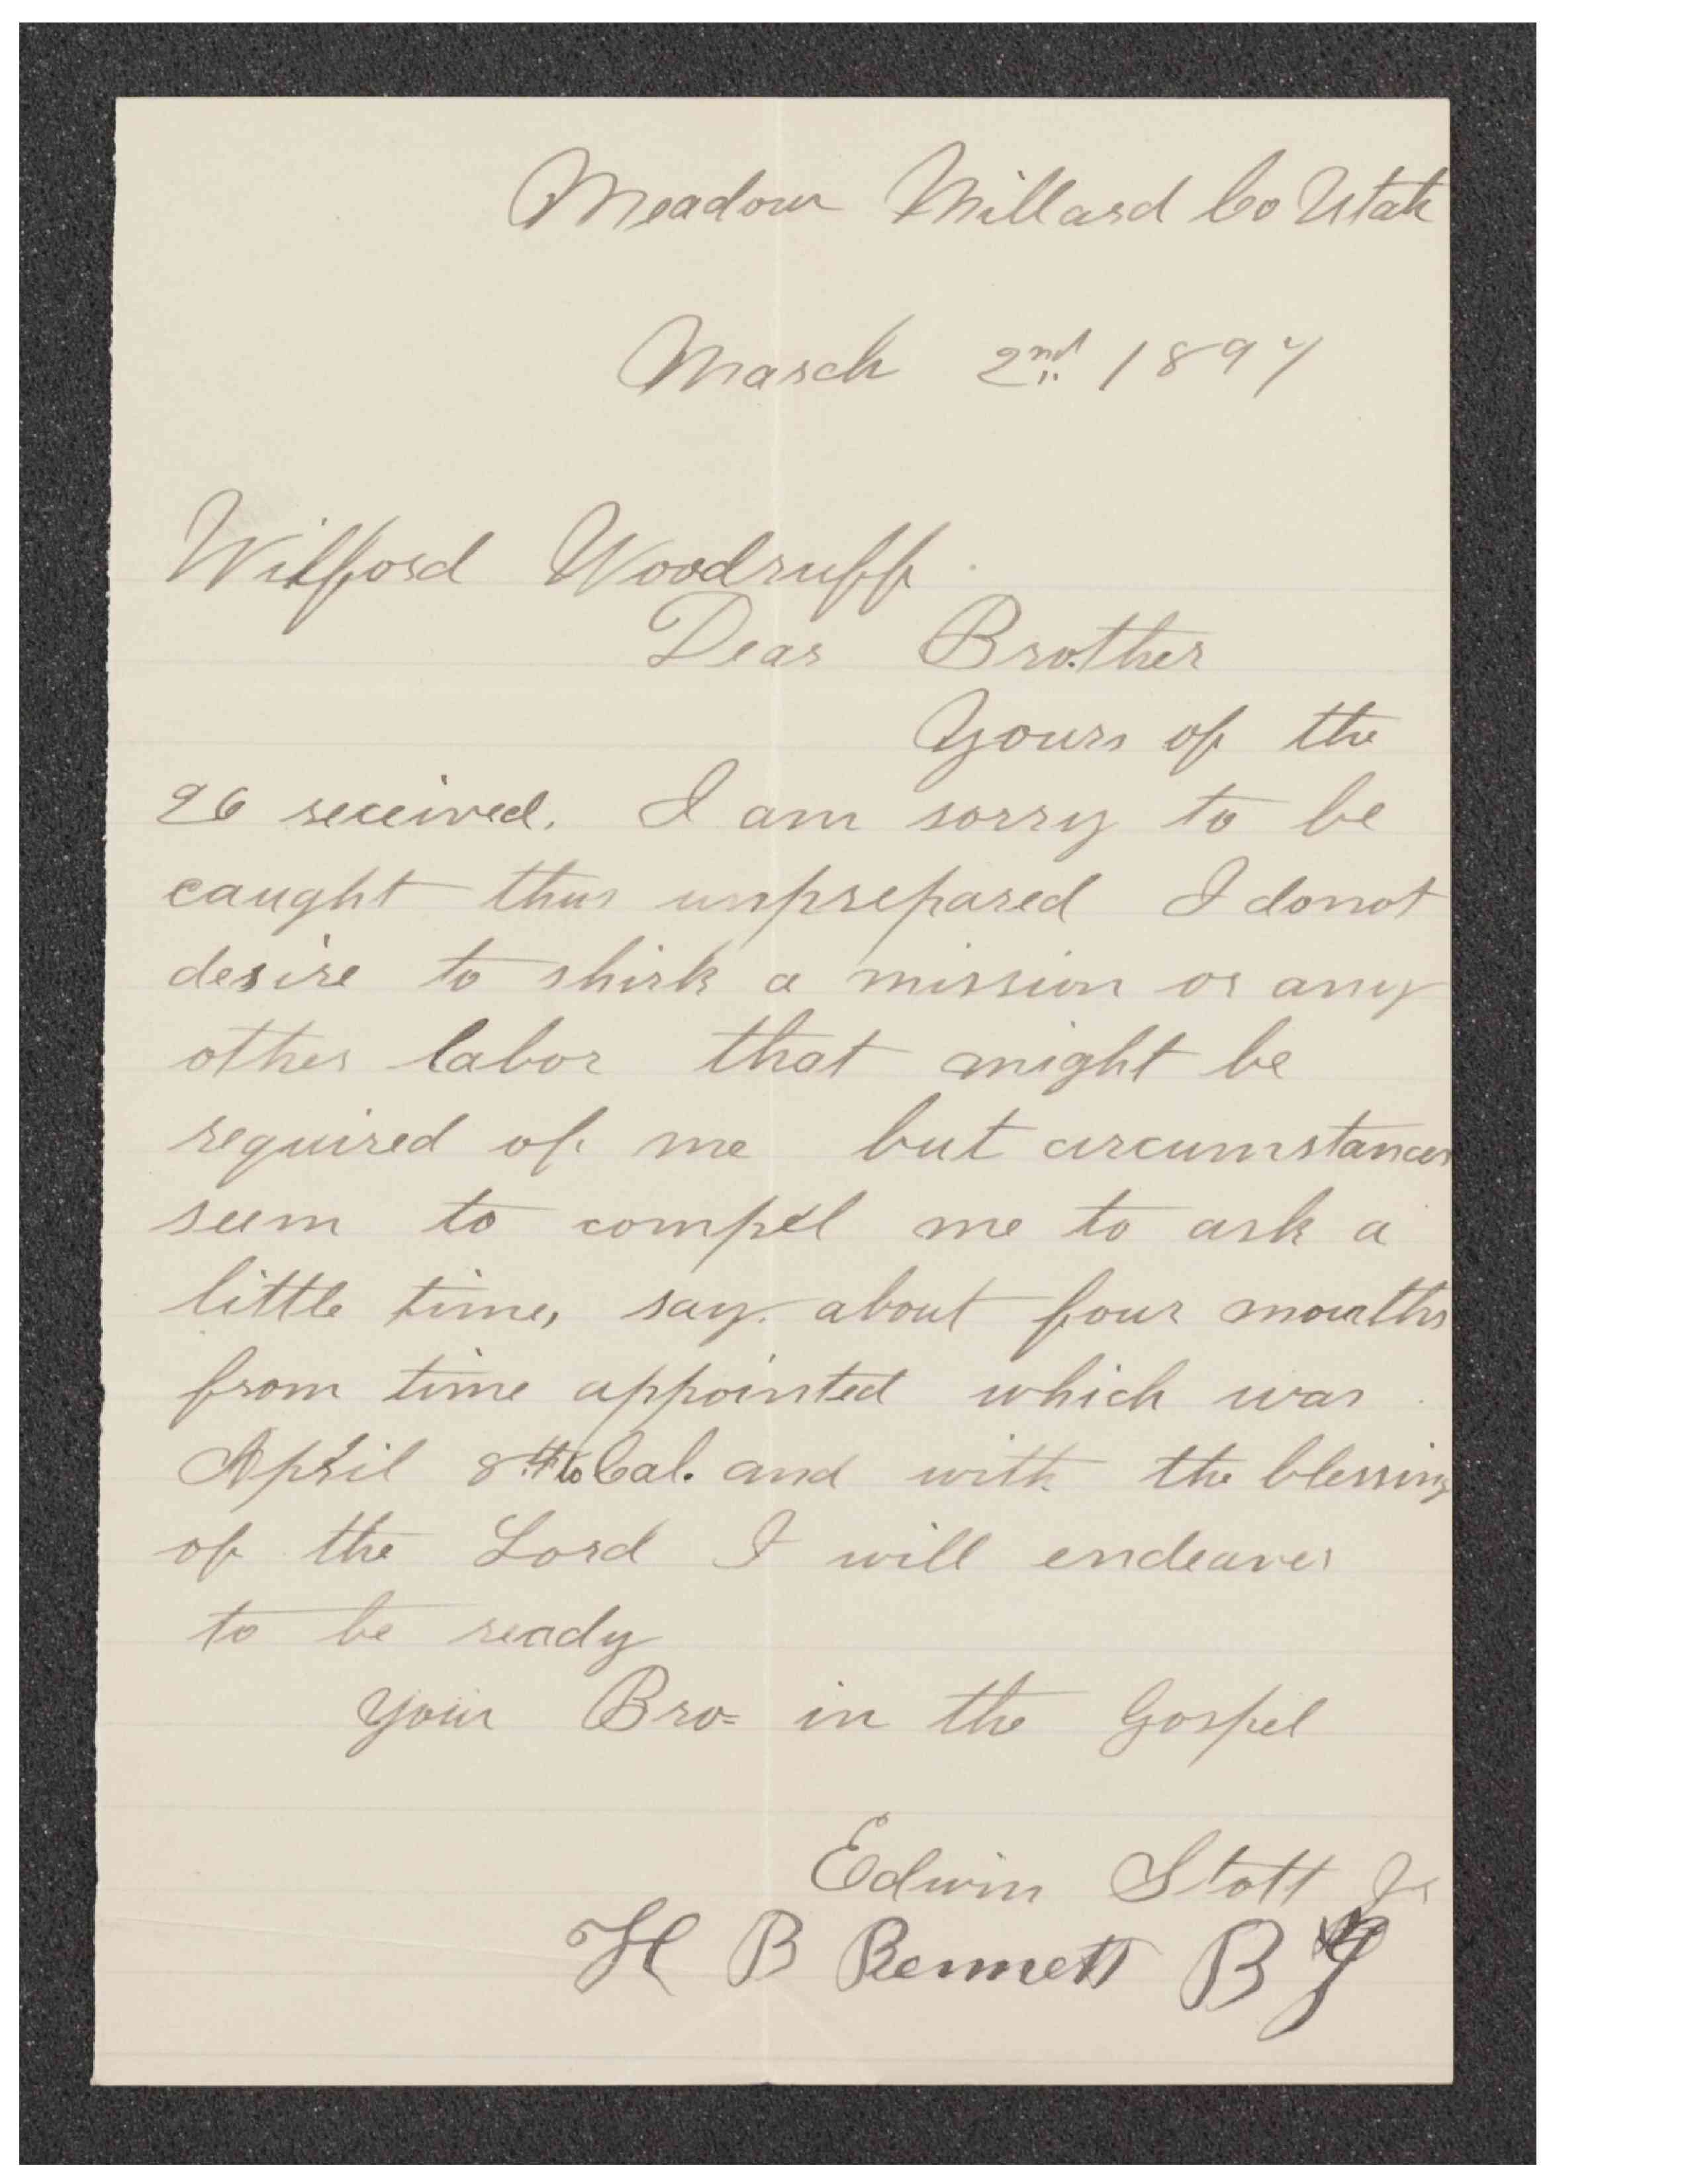 Meadow Millard Co Utah
March 2nd 1897
Wilford Woodruff.
Dear Brother
Yours of the
26 received. I am sorry to be
caught thus unprepared I donot
desire to shirk a mission or any
other labor that might be
required of me but circumstances
seem to compel me to ask a
little time, say about four months
from time appointed which was
April 8th to Cal. and with the blessing
of the Lord I will endeaver
to be ready
your Bro= in the Gospel
Edwin Stott Jr
H B Bennett B